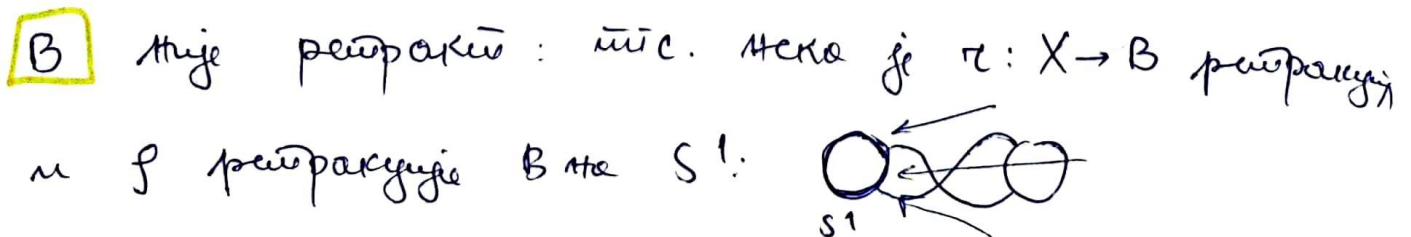 B није ретракт: тпс. нека је r: X → B ретракција
и ρ ретракција B на S¹:
S1